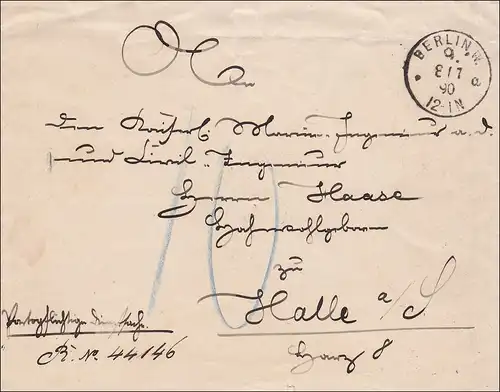 BERLIN.W.
9.
8/7
a
90
12-1N
An
den Kaiserl. Marine-Ingenieur a. d.
und Civil-Ingenieur
Herrn Haase
Hochwohlgeboren
10
zu
Halle a/S
Harz 8
Portopflichtige Dienstsache.
R. No. 44146